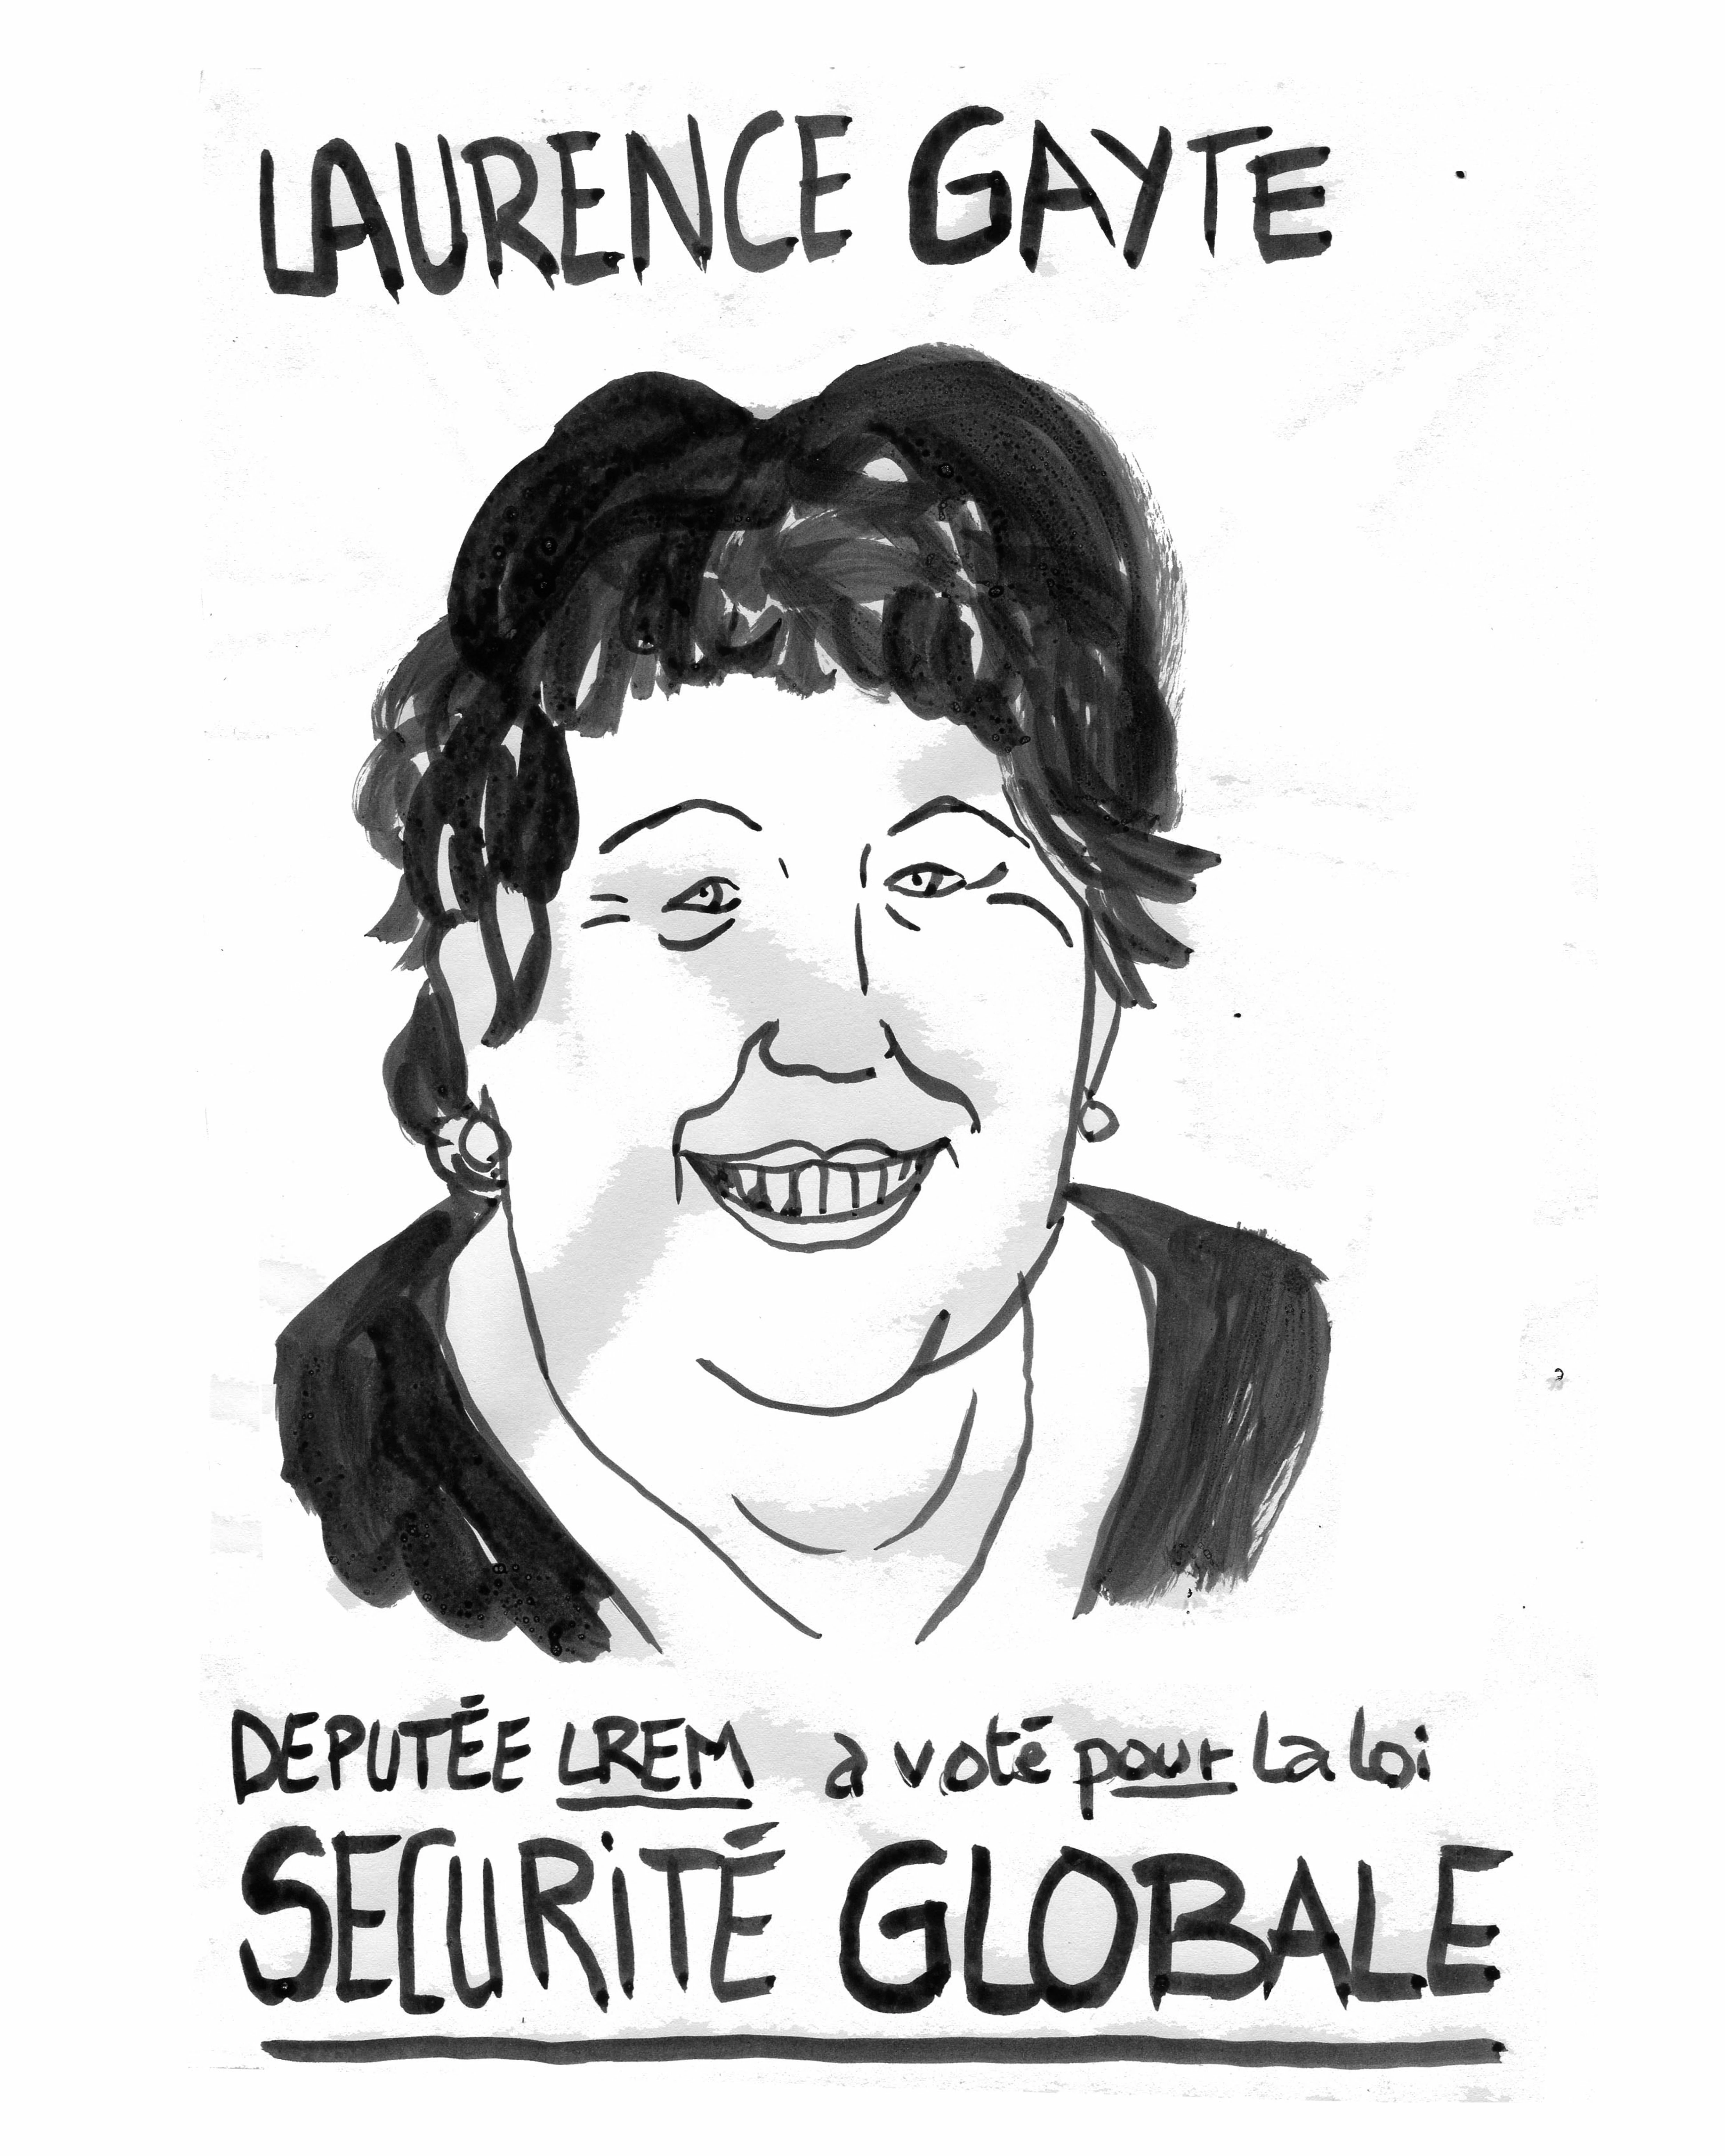 LAURENCE GAYTE
DEPUTÉE LREM a voté pour la loi
SECURITÉ GLOBALE